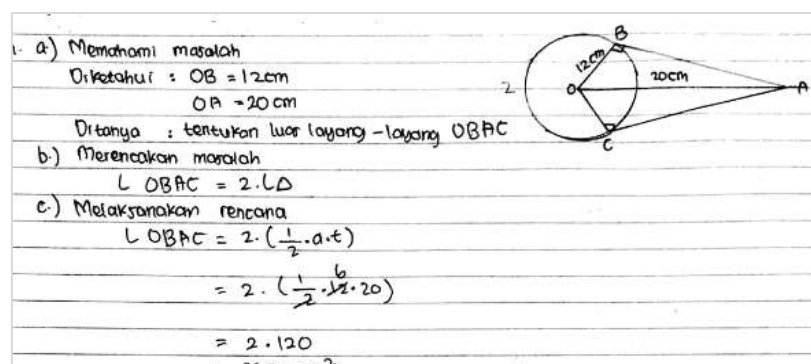 1. a.) Memahami masalah
Diketahui : OB = 12cm
OA = 20 cm
Ditanya : tentukan luas layang-layang OBAC
b.) Merencakan masalah
L OBAC = 2.L△
c.) Melaksanakan rencana
L OBAC = 2.(1/2.a.t)
= 2.(1/2.12.20)
6
= 2.120
B
12cm
20cm
2
O
A
C